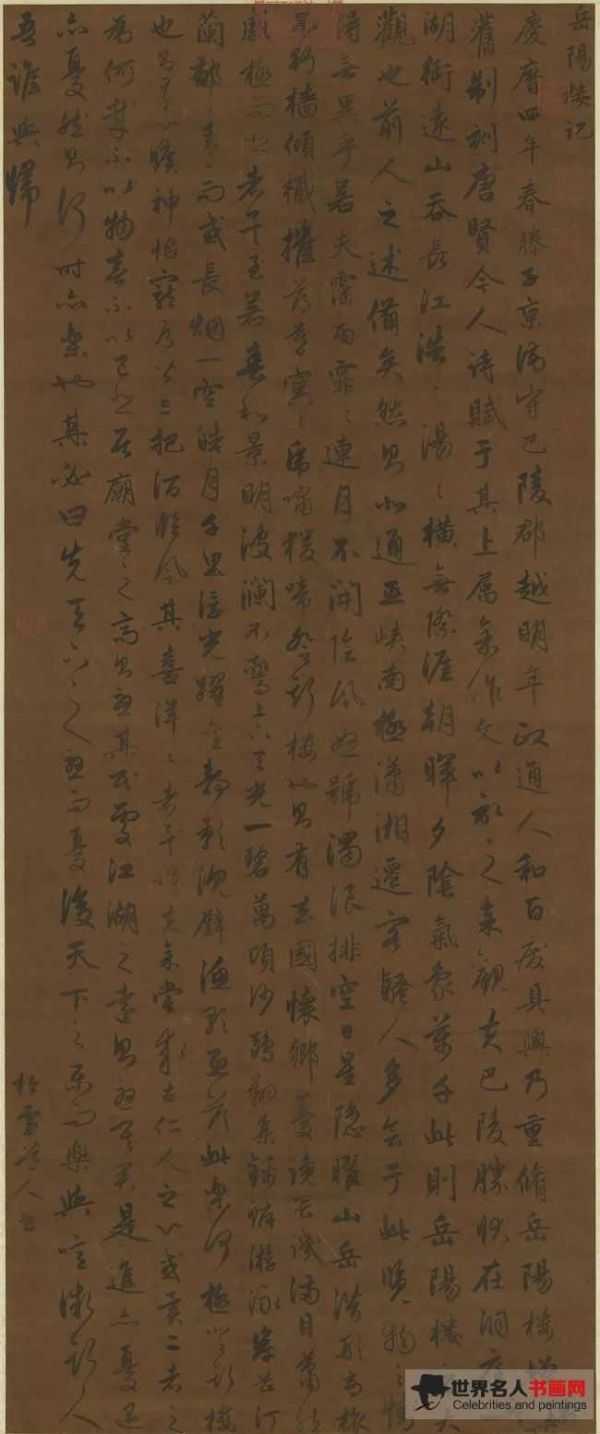 岳陽樓記
慶曆四年春滕子京謫守巴陵郡越明年政通人和百廢具興乃重脩岳陽樓增
舊制刻唐賢今人詩賦于其上属余作文以記之余觀夫巴陵勝狀在洞庭
湖銜遠山吞長江浩〻湯〻橫無際涯朝暉夕陰氣象萬千此則岳陽樓之大
觀也前人之述備矣然則北通巫峽南極瀟湘遷客騷人多會于此覽物之情
得無異乎若夫霪雨霏〻連月不開陰風怒號濁浪排空日星隱曜山岳潛形商旅
不行檣傾檝摧薄暮冥〻虎嘯猿啼登斯樓也則有去國懷鄉憂讒畏譏滿目蕭然
感極而悲者乎至若春和景明波瀾不驚上下天光一碧萬頃沙鷗翔集錦鱗游泳岸芷汀
蘭郁青〻而或長烟一空皓月千里浮光躍金靜影沉璧漁歌互答此樂何極登斯樓
也則有心曠神怡寵辱皆忘把酒臨風其喜洋〻者乎嗟夫余嘗求古仁人之心或異二者之
為何哉不以物喜不以己悲居廟堂之高則憂其民處江湖之遠則憂其君是進亦憂退
亦憂然則何時而樂也其必曰先天下之憂而憂後天下之樂而樂與噫微斯人
吾誰與歸
道人書
世界名人书画网
Celebrities and paintings